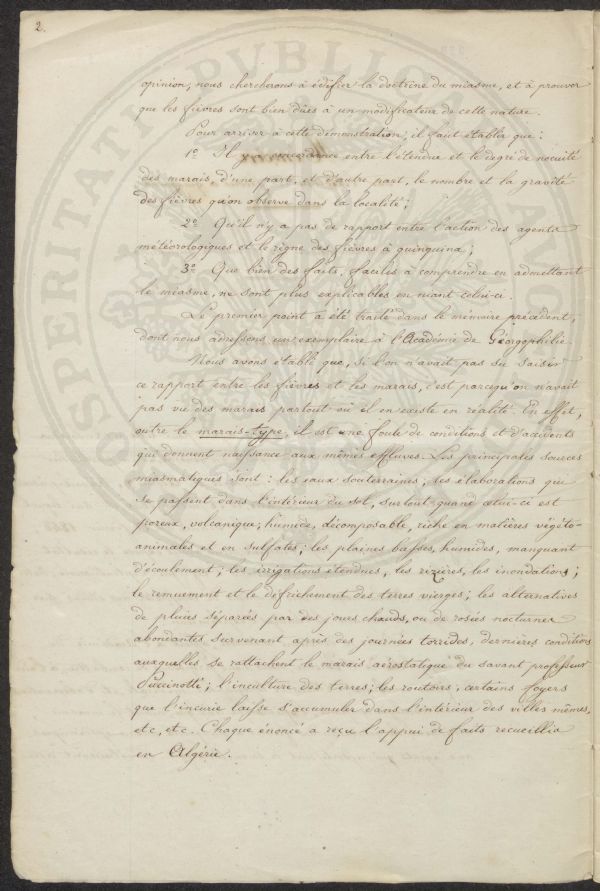 2.
opinion, nous chercherons à édifier la doctrine du miasme, et à prouver
que les fièvres sont bien dûes à un modificateur de cette nature.
Pour arriver à cette démonstration, il faut établir que:
1º Il y a concordance entre l'étendue et le degré de nocuité
des marais, d'une part, et d'autre part, le nombre et la gravité
des fièvres qu'on observe dans la localité;
2º Qu'il n'y a pas de rapport entre l'action des agents
météorologiques et le règne des fièvres à quinquina;
3º Que bien des faits, faciles à comprendre en admettant
le miasme, ne sont plus explicables en niant celui-ci.
Le premier point a été traité dans le mémoire précédent,
dont nous adressons un exemplaire à l'Académie de Géorgophilie.
Nous avons établi que, si l'on n'avait pas su saisir
ce rapport entre les fièvres et les marais, c'est parcequ'on n'avait
pas vu des marais partout où il en existe en réalité. En effet,
outre le marais-type, il est une foule de conditions et d'accidents
qui donnent naissance aux mêmes effluves. Les principales sources
miasmatiques sont: les eaux souterraines; les élaborations qui
se passent dans l'intérieur du sol, surtout quand celui-ci est
poreux, volcanique, humide, décomposable, riche en matières végéto-
animales et en sulfates; les plaines basses, humides, manquant
d'écoulement; les irrigations étendues, les rizières, les inondations;
le remuement et le défrichement des terres vierges; les alternatives
de pluies séparées par des jours chauds, ou de rosées nocturnes
abondantes survenant après des journées torrides, dernières conditions
auxquelles se rattachent le marais aérostatique du savant professeur
Puccinotti; l'inculture des terres; les routoirs, certains foyers
que l'incurie laisse s'accumuler dans l'intérieur des villes mêmes,
etc, etc. Chaque énoncé a reçu l'appui de faits recueillis
en Algérie.
PROSPERITATI PUBLICAE AUG